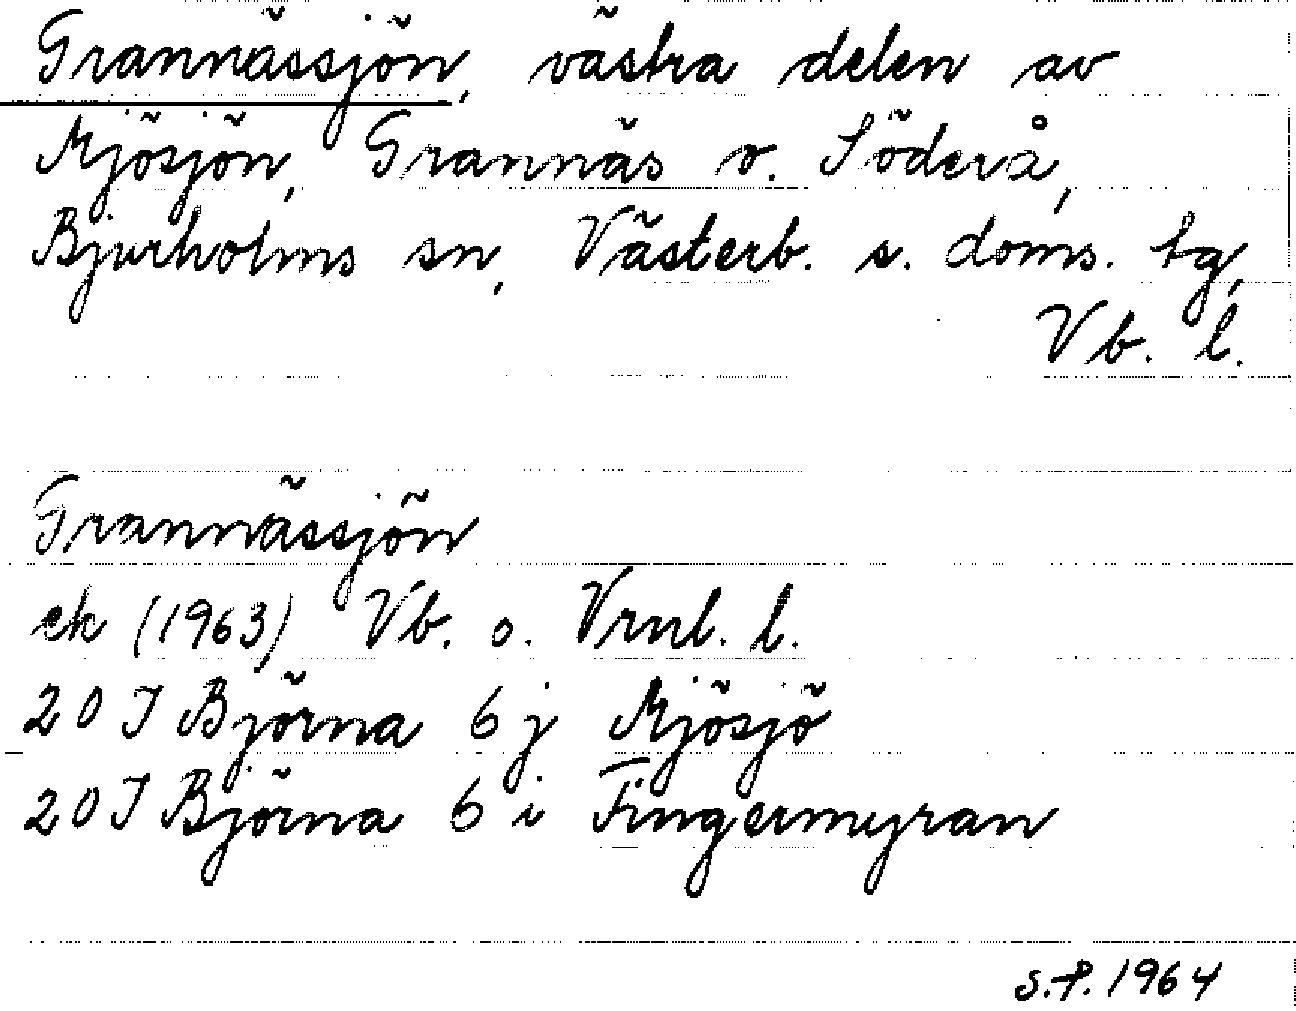 Grannässjön, västra delen av
Mjösjön, Grannäs o. Söderå,
Bjurholms sn, Västerb. s. doms. tg,
Vb. l.
Grannässjön
ek (1963) Vb. o. Vrnl. l.
20 I Björna 6 j Mjösjö
20 I Björna 6 i Fingermyran
S.P. 1964